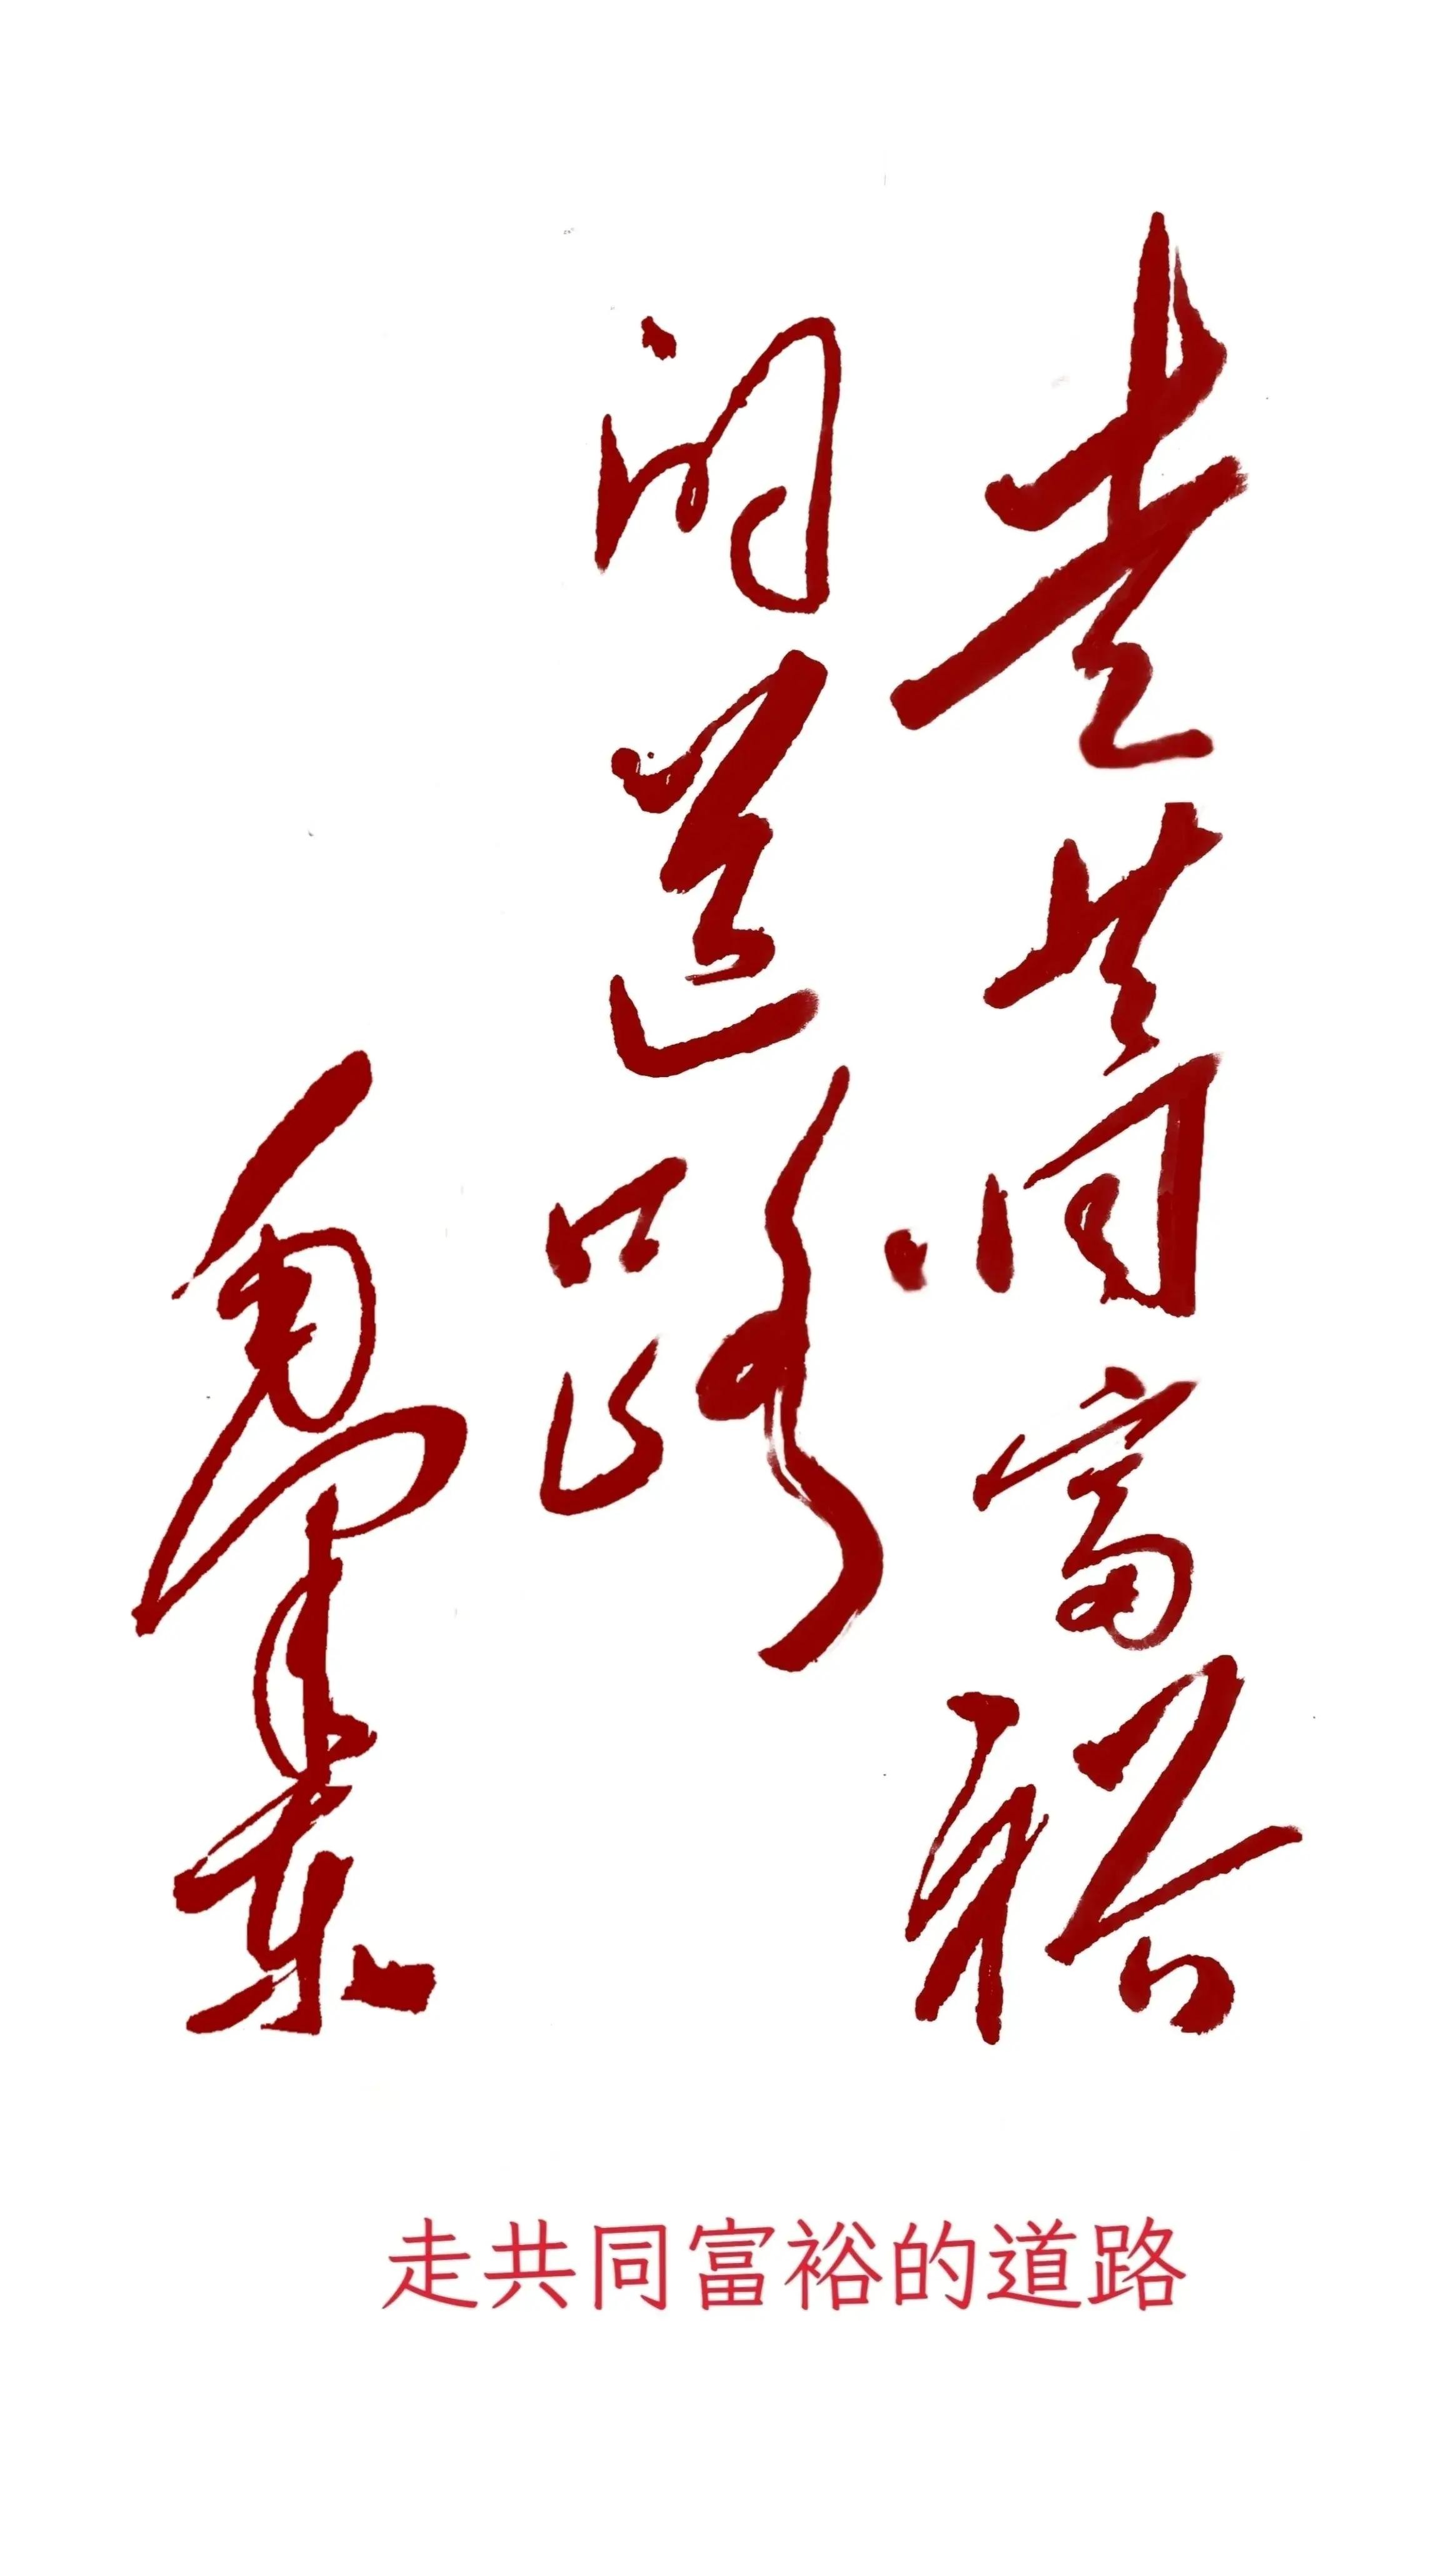 走共同富裕
的道路
毛泽东
走共同富裕的道路